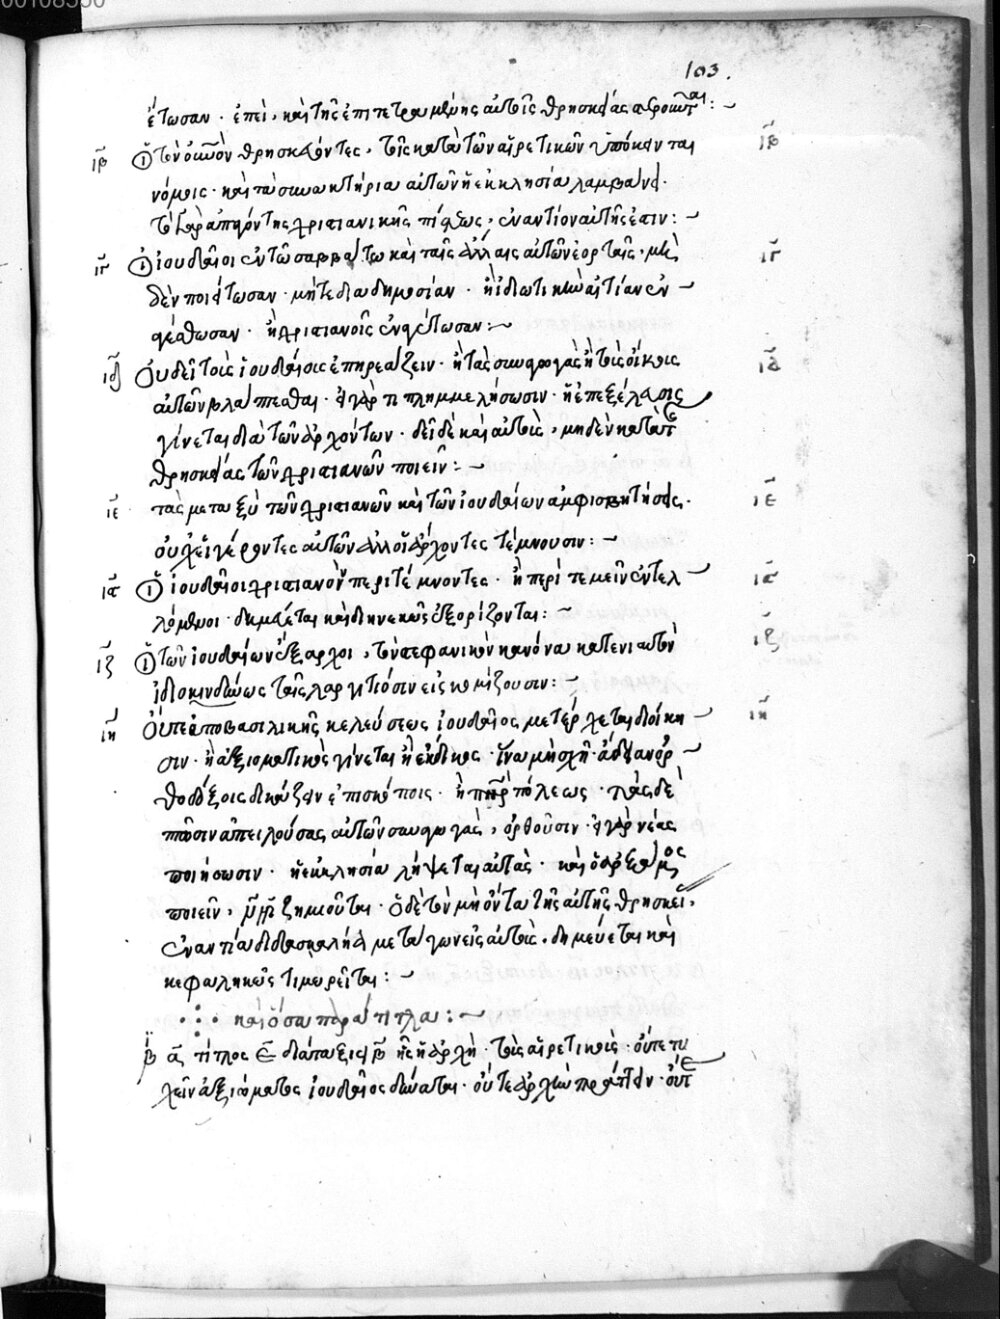 103.
έτωσαν · ἐπεὶ, καὶ τῆς ἐπιτετραμμένης αὐτοῖς θρησκείας ἀφαιροῦνται :~
ιβ Οἱ τὸν οὐρανὸν θρησκεύοντες, τοῖς κατὰ τῶν αἱρετικῶν ὑπόκεινται ιβ
νόμοις · καὶ τὰ συνακτήρια αὐτῶν ἡ ἐκκλησία λαμβάνει ·
τὸ γὰρ ἀπηρόν τῆς χριστιανικῆς πίστεως, ἐναντίον αὐτῆς ἐστιν :~
ιγ Οἱ ἰουδαῖοι ἐν τῷ σαββάτῳ καὶ ταῖς ἄλλαις αὐτῶν ἑορταῖς · μη ιγ
δὲν ποιείτωσαν · μήτε διὰ δημοσίαν · ἢ ἰδιωτικὴν αἰτίαν ἐν
αγέσθωσαν · ἢ χριστιανοῖς ἐναγέτωσαν :~
ιδ Οὐ δεῖ τοὺς ἰουδαίους ἐπηρεάζειν · ἢ τὰς συναγωγὰς ἢ τοὺς οἴκους ιδ
αὐτῶν βλάπτεσθαι · εἰ γάρ τι πλημμελήσωσιν · ἡ ἐπεξέλευσις
γίνεται διὰ τῶν ἀρχόντων · δεῖ δὲ καὶ αὐτοὺς, μηδὲν κατὰ τῆς
θρησκείας τῶν χριστιανῶν ποιεῖν :~
ιε τὰς μεταξὺ τῶν χριστιανῶν καὶ τῶν ἰουδαίων ἀμφισβητήσεις · ιε
οὐχ οἱ γέροντες αὐτῶν ἀλλ' οἱ ἄρχοντες τέμνουσιν :~
ις Οἱ ἰουδαῖοι χριστιανὸν περιτέμνοντες · ἢ περιτεμεῖν ἐντελ ις
λόμενοι · δημεύεται καὶ διηνεκῶς ἐξορίζονται :~
ιζ Οἱ τῶν ἰουδαίων ἔξαρχοι, τὸν στεφανικὸν κανόνα κατ' ἐνιαυτὸν ιζ
ἰδιοκινδύνως ταῖς λαργιτιόσιν εἰσκομίζουσιν :~
ιη Οὔτε ἀπὸ βασιλικῆς κελεύσεως ἰουδαῖος μετέρχεται διοίκη ιη
σιν · ἢ ἀξιοματικὸς γίνεται ἢ ἔκδικος · ἵνα μὴ σχῇ ἄδειαν ὀρ
θοδόξοις δικάζειν ἐπισκόποις · ἢ πατὴρ πόλεως · τὰς δὲ
πτῶσιν ἀπειλούσας αὐτῶν συναγωγάς, ὀρθοῦσιν · εἰ γὰρ νέας
ποιήσωσιν · ἡ ἐκκλησία λήψεται αὐτάς · καὶ ὁ ἀρξάμενος
ποιεῖν, ζημιοῦται · ὁ δὲ τὸν μὴ ὄντα τῆς αὐτῆς θρησκεί,
ἐναντία διδασκαλίᾳ μεταγωνεῖς αὐτοὺς · δημεύεται καὶ
κεφαληκῶς τιμωρεῖται :~
καὶ ὅσα παράτιτλα :~
β α τίτλος ε διάταξις β ἧς ἡ ἀρχή · τοὺς αἱρετικούς · οὔτε τυ
χεῖν ἀξιώματος ἰουδαῖος δύναται · οὔτε ἀρχὴν πράττειν · οὔτε